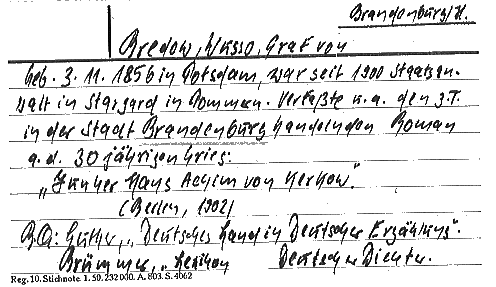 Brandenburg/H.
Bredow, Hasso, Graf von
Geb. 3. 11. 1856 in Potsdam, war seit 1900 Staatsan-
walt in Stargard in Pommern. Verfaßte u.a. den z.T.
in der Stadt Brandenburg handelnden Roman
a.d. 30 jährigen Krieg:
„Junker Hans Achim von Kerkow".
(Berlin, 1902)
Luther, „Deutsches Land in Deutscher Erzählung".
Brümmer, „Lexikon Deutscher Dichter.
Reg. 10. Stichnote. 1. 50. 232000. A. 803. S. 4062